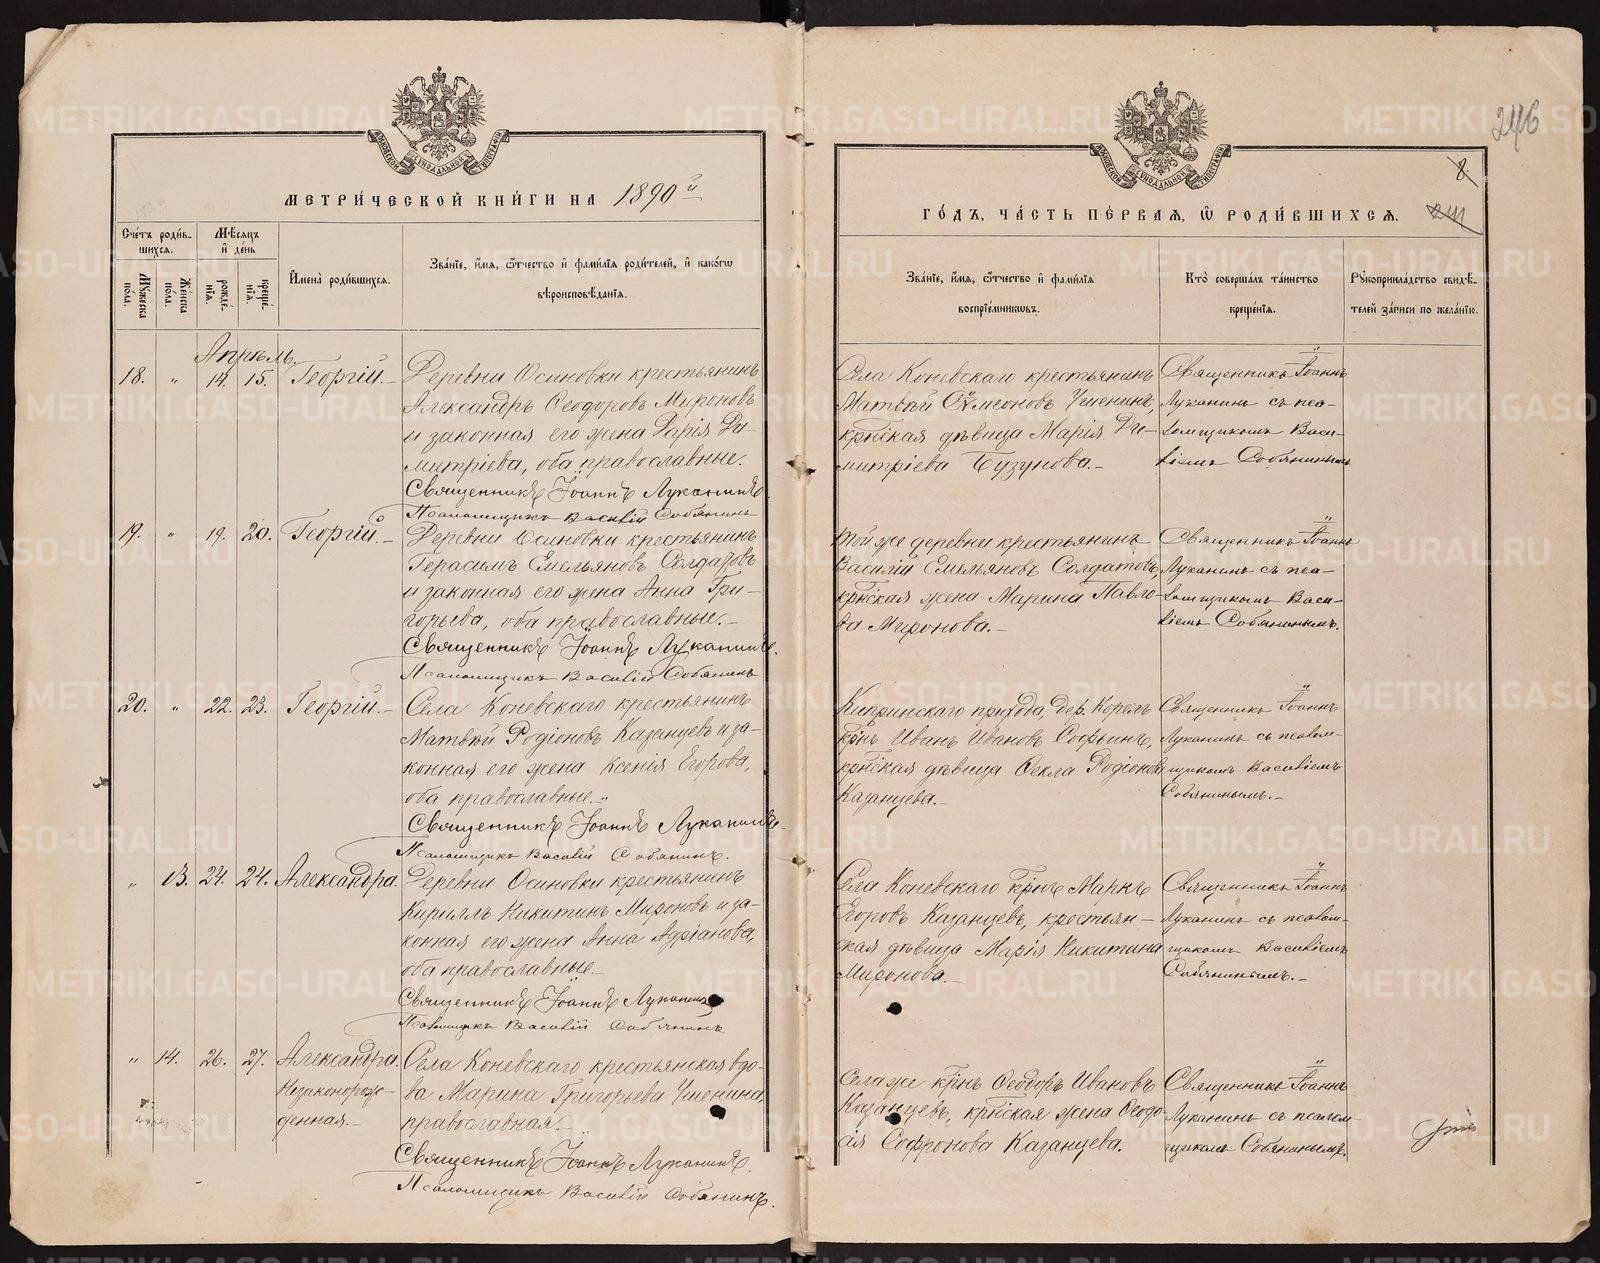 МЕТРИ́ЧЕСКОЙ КНИ́ГИ НА 1890й
Сче́тъ роди́в-
шихся.
Мѣсяцъ
и҆ де́нь
Мꙋ́жеска
по́ла.
Же́нска
по́ла.
рожде́-
нїѧ.
креще́-
нїѧ.
И҆мена̀ роди́вшихсѧ.
Зва́нїе, и҆́мѧ, ѻ҆́тчество и҆ фами́лїѧ роди́телей, и҆ како́гѡ
вѣроисповѣ́данїѧ.
Апрѣль.
18. „ 14. 15. Георгій.
Деревни Осиновки крестьянинъ
Александръ Ѳеодоровъ Мироновъ
и законная его жена Дарія Ди-
митріева, оба православные.
Священникъ Іоаннъ Луканинъ
Псаломщикъ Василій Собянинъ
19. „ 19. 20. Георгій.
Деревни Осиновки крестьянинъ
Герасимъ Емельяновъ Солдатовъ
и законная его жена Анна Гри-
горьева, оба православные.
Священникъ Іоаннъ Луканинъ.
Псаломщикъ Василій Собянинъ
20. „ 22. 23. Георгій.
Села Коневскаго крестьянинъ
Матвѣй Родіоновъ Казанцевъ и за-
конная его жена Ксенія Егорова,
оба православные.
Священникъ Іоаннъ Луканинъ
Псаломщикъ Василій Собянинъ.
„ 13. 24. 24. Александра
Деревни Осиновки крестьянинъ
Кириллъ Никитинъ Мироновъ и за-
конная его жена Анна Адріанова,
оба православные.
Священникъ Іоаннъ Луканинъ
Псаломщикъ Василій Собянинъ
„ 14. 26. 27. Александра.
Незаконорож-
денная.
Села Коневскаго крестьянская вдо-
ва Марина Григорьева Ушенина,
православная.
Священникъ Іоаннъ Луканинъ.
Псаломщикъ Василій Собянинъ.
246
8
211
ГО́ДЪ, ЧА́СТЬ ПЕ́РВАЯ, Ѡ҆ РОДИ́ВШИХСЯ.
Зва́нїе, и҆́мѧ, ѻ҆́тчество и҆ фами́лїѧ
воспрїе́мникѡвъ.
Кто̀ соверша́лъ та́инство
креще́нїѧ.
Рꙋкоприкла́дство свидѣ́-
телей за́писи по жела́нїю.
Села Коневскаго крестьянинъ
Матвѣй Сѷмеоновъ Ушенинъ,
крнская дѣвица Марія Ди-
митріева Бузунова.
Священникъ Іоаннъ
Луканинъ съ пса-
ломщикомъ Васи-
ліемъ Собянинымъ
Той же деревни крестьянинъ
Василій Емельяновъ Солдатовъ,
крнская жена Марина Павло-
ва Миронова.
Священникъ Іоаннъ
Луканинъ съ пса-
ломщикомъ Васи-
ліемъ Собянинымъ.
Кипринскаго прихода, дер. Корелъ
крнъ Иванъ Ивановъ Софьинъ,
крнская дѣвица Ѳекла Родіонова
Казанцева.
Священникъ Іоаннъ
Луканинъ съ псалом-
щикомъ Василіемъ
Собянинымъ.
Села Коневскаго крнъ Маркъ
Егоровъ Казанцевъ, крестьян-
ская дѣвица Марія Никитина
Миронова.
Священникъ Іоаннъ
Луканинъ съ псалом-
щикомъ Василіемъ
Собянинымъ.
Села же крнъ Ѳеодоръ Ивановъ
Казанцевъ, крнская жена Ѳеодо-
сія Софронова Казанцева.
Священникъ Іоаннъ
Луканинъ съ псалом
щикомъ Собянинымъ.
METRIKI.GASO-URAL.RU